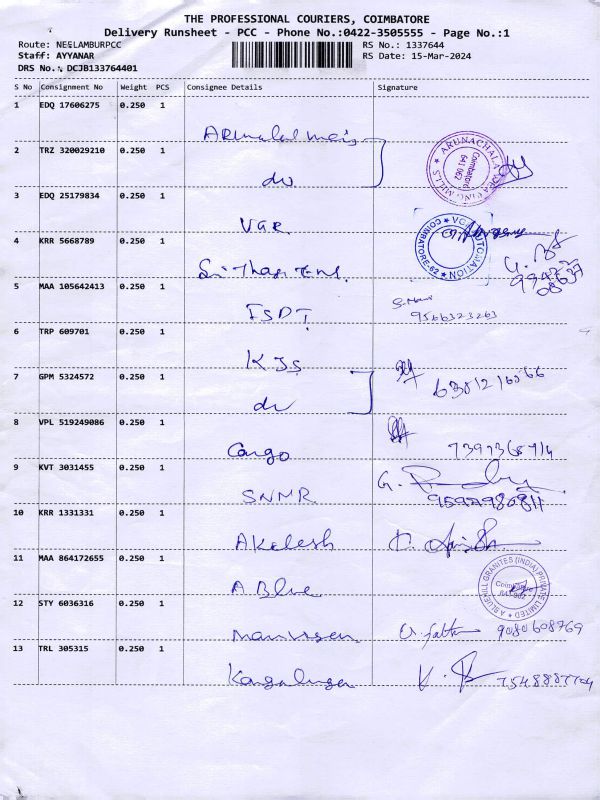 THE PROFESSIONAL COURIERS, COIMBATORE
Delivery Runsheet - PCC - Phone No.:0422-3505555 - Page No.:1
Route: NEELAMBURPCC
Staff: AYYANAR
DRS No.: DCJB133764401
RS No.: 1337644
RS Date: 15-Mar-2024
S No Consignment No Weight PCS Consignee Details Signature
1 EDQ 17606275 0.250 1
2 TRZ 320029210 0.250 1
do
ARUNACHALA MILLS
Coimbatore
641 062
3 EDQ 25179834 0.250 1
VGR
COIMBATORE-62
4 KRR 5668789 0.250 1
5 MAA 105642413 0.250 1
FSDT
9566323263
6 TRP 609701 0.250 1
KJS
7 GPM 5324572 0.250 1
do
8 VPL 519249086 0.250 1
Cargo
9 KVT 3031455 0.250 1
SNMR
10 KRR 1331331 0.250 1
Akelesh
11 MAA 864172655 0.250 1
A. Blue
A BLUEHILL GRANITES (INDIA) PRIVATE LIMITED
12 STY 6036316 0.250 1
9080608769
13 TRL 305315 0.250 1